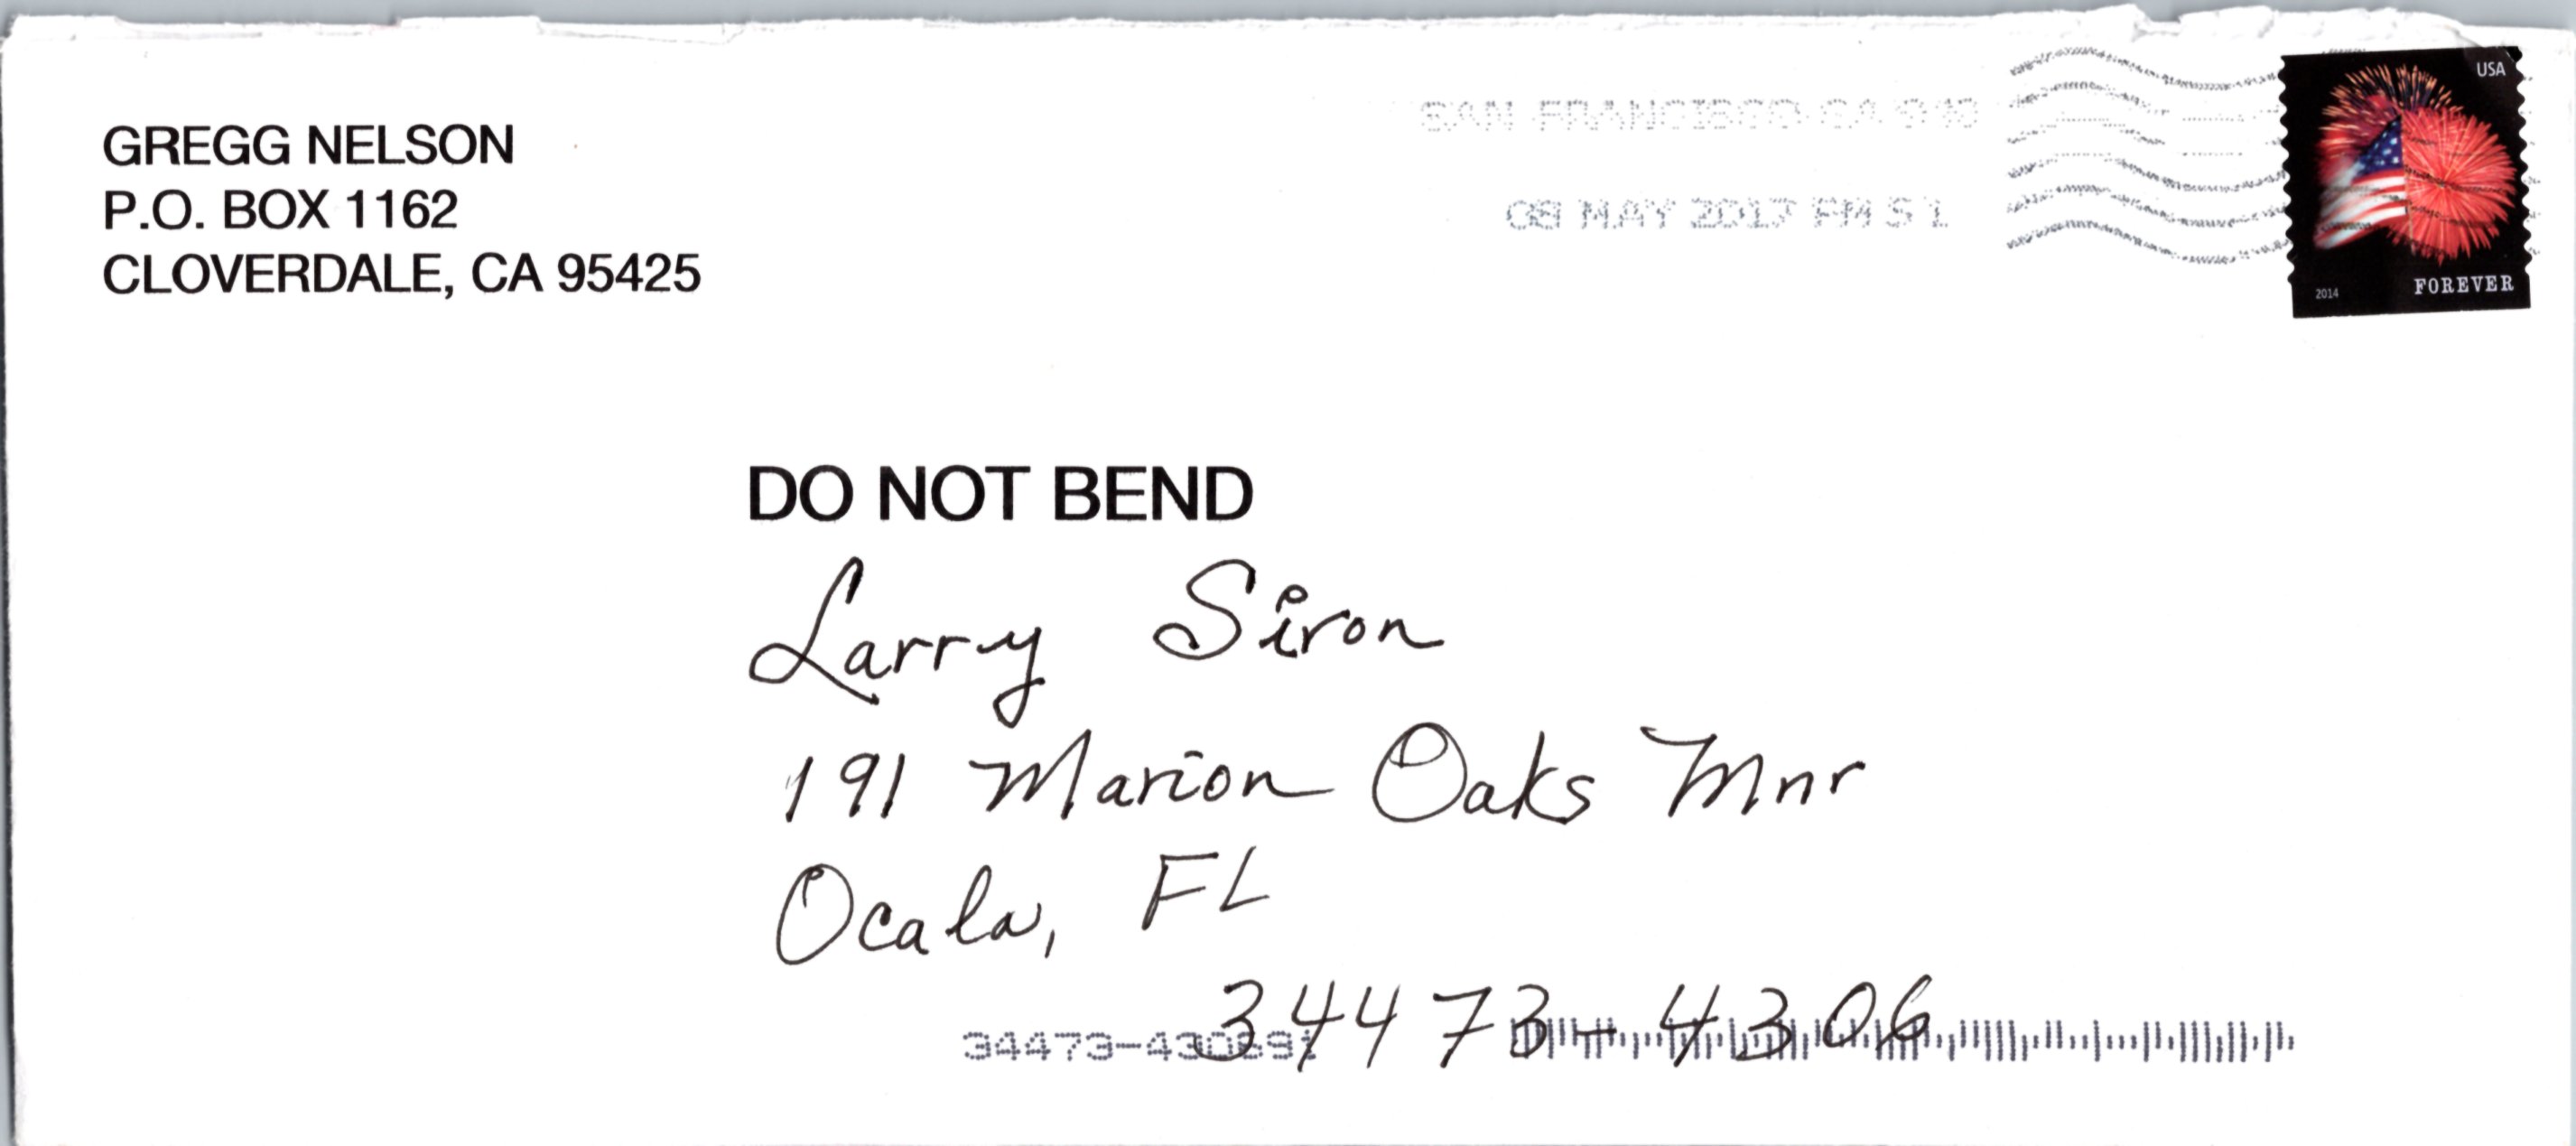 GREGG NELSON
P.O. BOX 1162
CLOVERDALE, CA 95425
SAN FRANCISCO CA 940
08 MAY 2017 PM 5 L
USA
2014
FOREVER
DO NOT BEND
Larry Siron
191 Marion Oaks Mnr
Ocala, FL
34473-4306
34473-430691